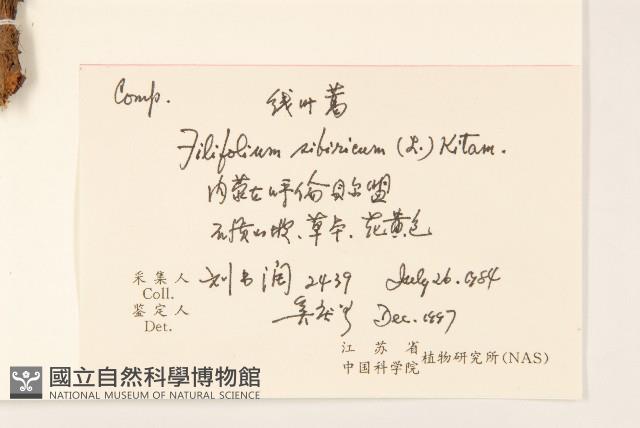 Comp. 线叶蒿
Filifolium sibiricum (L.) Kitam.
内蒙古呼伦贝尔盟
石质山坡、草本、花黄色
采集人 刘书润 2439 July 26. 1984
Coll.
鉴定人 Dec. 1997
Det.
江苏省
中国科学院 植物研究所(NAS)
國立自然科學博物館
NATIONAL MUSEUM OF NATURAL SCIENCE